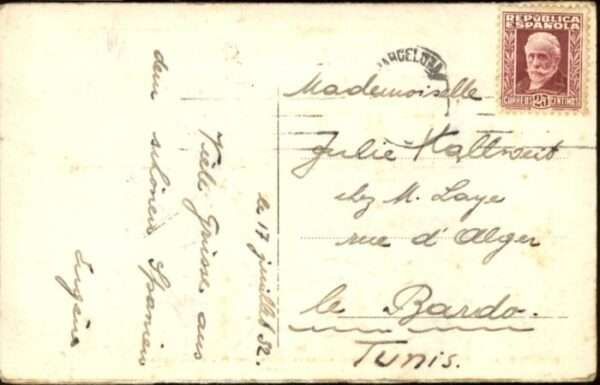 REPÚBLICA
ESPAÑOLA
CORREOS 25 CENTIMOS
BARCELONA
Mademoiselle
Julie Kaltweit
chez M. Laye
rue d'Alger
le Bardo.
Tunis.
le 17 juillet 32.
Viele Grüsse aus
dem schönen Spanien
Eugène